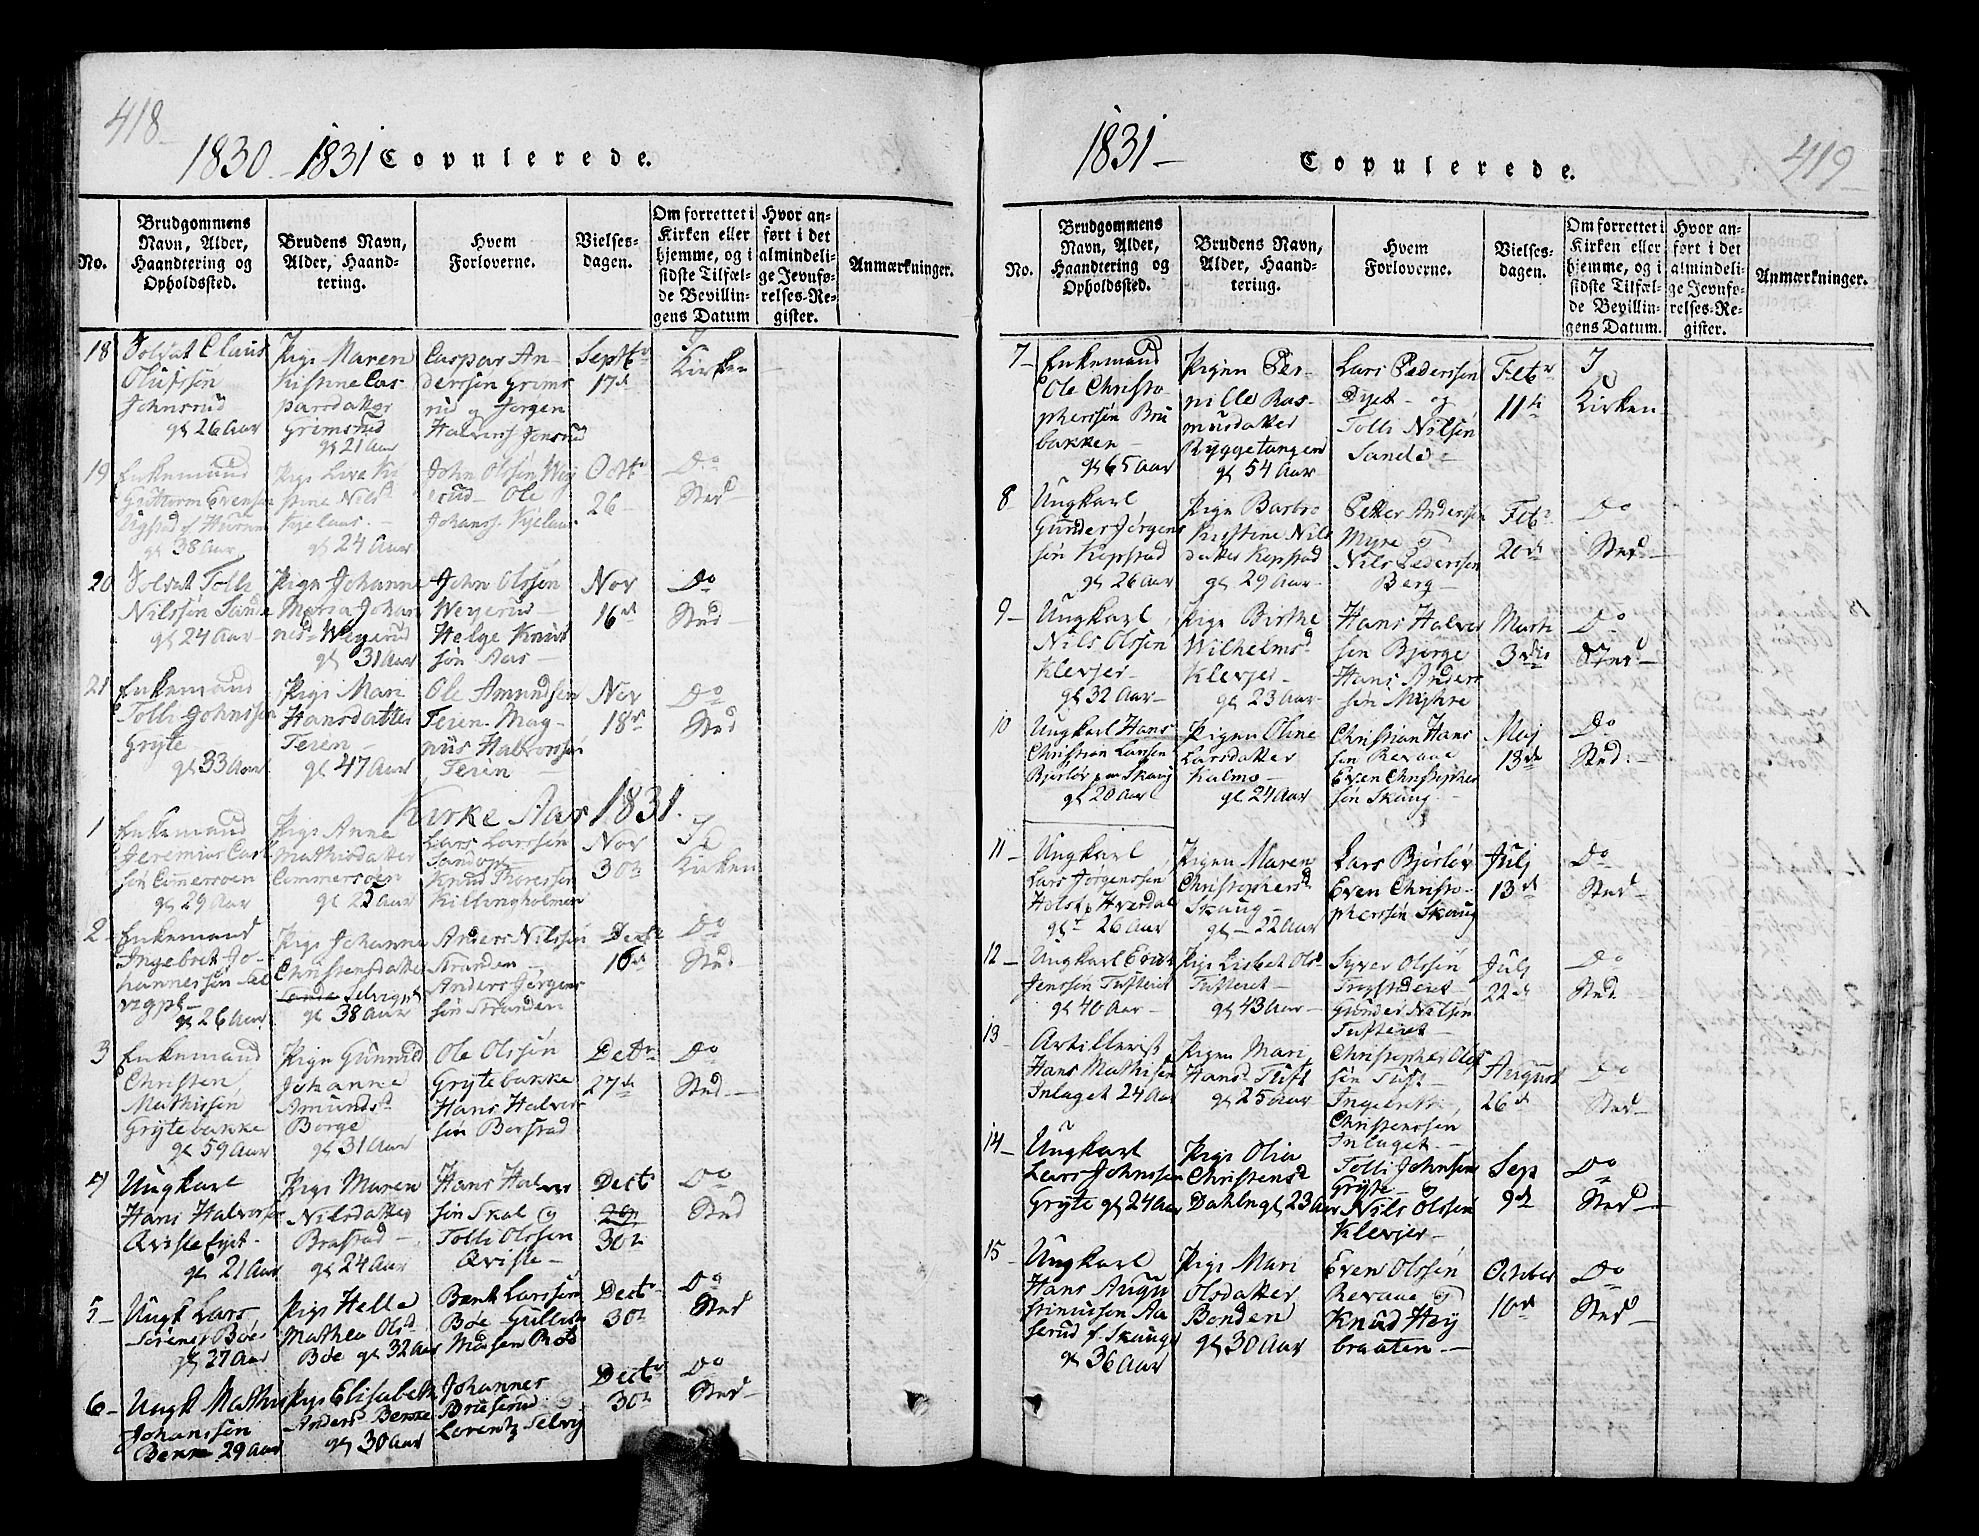 418
1830 - 1831 Copulerede.
No.
Brudgommens
Navn, Alder,
Haandtering og
Opholdssted.
Brudens Navn,
Alder, Haand-
tering.
Hvem
Forloverne.
Vielses-
dagen.
Om forrettet i
Kirken eller
hjemme, og i
sidste Tilfæl-
de Bevillin-
gens Datum
Hvor an-
ført i det
almindeli-
ge Jevnfø-
relses-Re-
gister.
Anmærkninger.
18
Soldat Claus
Olufssøn
Johnsrud
gl 26 Aar
Pige Maren
Kistine Cas-
parsdatter
Grimsrud
gl 21 Aar
Caspar An-
derssøn Grims
rud og Jørgen
Halvors. Jonsrud
Septbr
17de
I
Kirken
19
Enkemand
Guttorm Evensen
gl 38 Aar
Pige
stine Nilsd
Kjelaas
gl 24 Aar
John Olssøn
Ole
Johanss. Kjelaas
Octr
26
Do
Sted
20
Soldat Tolli
Nilssøn Sande
gl 24 Aar
Pige Johanne
Maria Johan
nesd Weyerud
gl 31 Aar
John Olssøn
Weyerud
Helge Knud
søn Aas
Nov
16de
Do
Sted
21
Enkemand
Tolli Johnssøn
Gryte
gl 33 Aar
Pige Mari
Hansdatter
Teren
gl 47 Aar
Ole Amundsen
Teren - Mag-
nus Halvorssøn
Teren
Nov
18de
Do
Sted
Kirke Aar 1831.
1
Enkemand
Jeremias Carl
søn
gl 29 Aar
Pige Anne
Mathisdatter
gl 25 Aar
Lars Larssøn
Knud Toressøn
Killingholmen
Nov
30te
I
Kirken
2
Enkemand
Ingebret Jo-
hannessøn Sel
vigpl
gl 26 Aar
Pige Johanne
Christensdatter
Selvigpl
gl 38 Aar
Anders Nilssøn
Stranden
Anders Jørgens
søn Stranden
Do
Sted
3
Enkemand
Christen
Mathissen
Grytebakke
gl 59 Aar
Pige Gunnild
Johanne
Amundsd
Borge
gl 31 Aar
Ole Olssøn
Grytebakke
Hans Halvor
søn Berstad
Dectr
27de
Do
Sted
4
Ungkarl
Hans Halvorssøn
gl 21 Aar
Pige Maren
Nilsdatter
Brastad
gl 24 Aar
Hans Halvor
søn Skal og
Tolli Olssøn
Qviste
Dectr
29
30te
Do
Sted
5
Ungk Lars
Sørens Bøe
gl 27 Aar
Pige Helle
Mathea Olsd
Bøe gl 32 Aar
Bent Larssøn
Bøe
Dectr
30te
Do
Sted
6
Ungk Mathis
Johanssøn
Bekke 29 Aar
Pige Elisabeth
Andersd Bekke
gl 30 Aar
Johannes
Bruserud
Lorentz Selvig
Dectr
30te
Do
Sted
1831
Copulerede.
419
No.
Brudgommens
Navn, Alder,
Haandtering og
Opholdssted.
Brudens Navn,
Alder, Haand-
tering.
Hvem
Forloverne.
Vielses-
dagen.
Om forrettet i
Kirken eller
hjemme, og i
sidste Tilfæl-
de Bevillin-
gens Datum.
Hvor an-
ført i det
almindeli-
ge Jevnfø-
relses-Re-
gister.
Anmærkninger.
7
Enkemand
Ole Christo-
pherssøn Bru
bakken
gl 65 Aar
Pigen Per-
nille Ras-
musdatter
Ryggetangen
gl 54 Aar
Lars Pederssøn
og
Tolli Nilsøn
Sande
Febr
11te
I
Kirken
8
Ungkarl
Gunder Jørgens
søn Kopstad
gl 26 Aar
Pigen Barbro
Kirstine Nils
datter Kopstad
gl 29 Aar
Petter Anderssen
Myre og
Nils Pederssen
Berg
Febr
20de
Do
Sted
9
Ungkarl
Nils Olssøn
Klevjer
gl 32 Aar
Pige Birthe
Wilhelmsd
Klevjer
gl 23 Aar
Hans Halvor
søn Bjerge
Hans Anders
søn Myhre
Marti
3die
Do
Sted
10
Ungkarl Hans
Christian Larsen
Bjørløv paa Skaug
gl 20 Aar
Pigen Oline
Larsdatter
Holmo
gl 24 Aar
Christian Hans
søn Revaae
Even Christopher
søn Skaug
Maj
13de
Do
Sted
11
Ungkarl
Lars Jørgenssøn
Holst p Hverdal
gl 26 Aar
Pigen Maren
Christophersd
Skaug
gl 22 Aar
Lars Bjørløv
Even Christo-
pherssøn Skaug
Julj
13de
Do
Sted
12
Ungkarl Even
Jenssøn Tufteret
gl 40 Aar
Pige Lisbet Olsd
Tufteret
gl 43 Aar
Syver Olssøn
Gunder Nilsøn
Tufteret
Julj
22de
Do
Sted
13
Artillerist
Hans Mathisen
Inlaget 24 Aar
Pigen Mari
Hansd Tuft
gl 25 Aar
Christopher Ols
søn Tuft
Ingebrett
Christenssen
Inlaget
August
26de
Do
Sted
14
Ungkarl
Lars Johnssen
Gryte gl 24 Aar
Pige Olia
Christensd
Dahlen gl 23 Aar
Tolli Johnsen
Gryte og
Nils Olssøn
Klevjer
Sep
9de
Do
Sted
15
Ungkarl
Hans Augu
stinussen Aa
serud f. Skauge
gl 36 Aar
Pige Mari
Olsdatter
Bonden
gl 30 Aar
Even Olssøn
Revaae og
Knud Høy
braaten
October
10de
Do
Sted